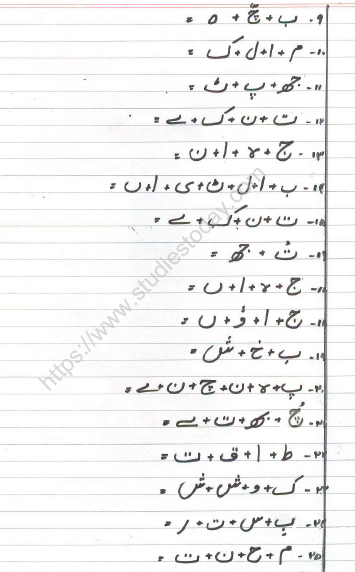 ۹- ب + چّ + ہ =
۱۰- م + ا + ل + ک =
۱۱- جھ + پ + ٹ =
۱۲- ت + ن + ک + ے =
۱۳- ج + ہ + ا + ن =
۱۴- ب + ا + ل + ٹ + ی + ا + ں =
۱۵- ت + ن + ک + ے =
۱۶- تُ + جھ =
۱۷- ج + ہ + ا + ں =
۱۸- ج + ا + ؤ + ں =
۱۹- ب + خ + ش =
۲۰- پ + ہ + ن + چ + ن + ے =
۲۱- چُ + بھ + ت + ے =
۲۲- ط + ا + ق + ت =
۲۳- ک + و + ش + ش =
۲۴- بِ + س + ت + ر =
۲۵- م + ح + ن + ت =
https://www.studiestoday.com